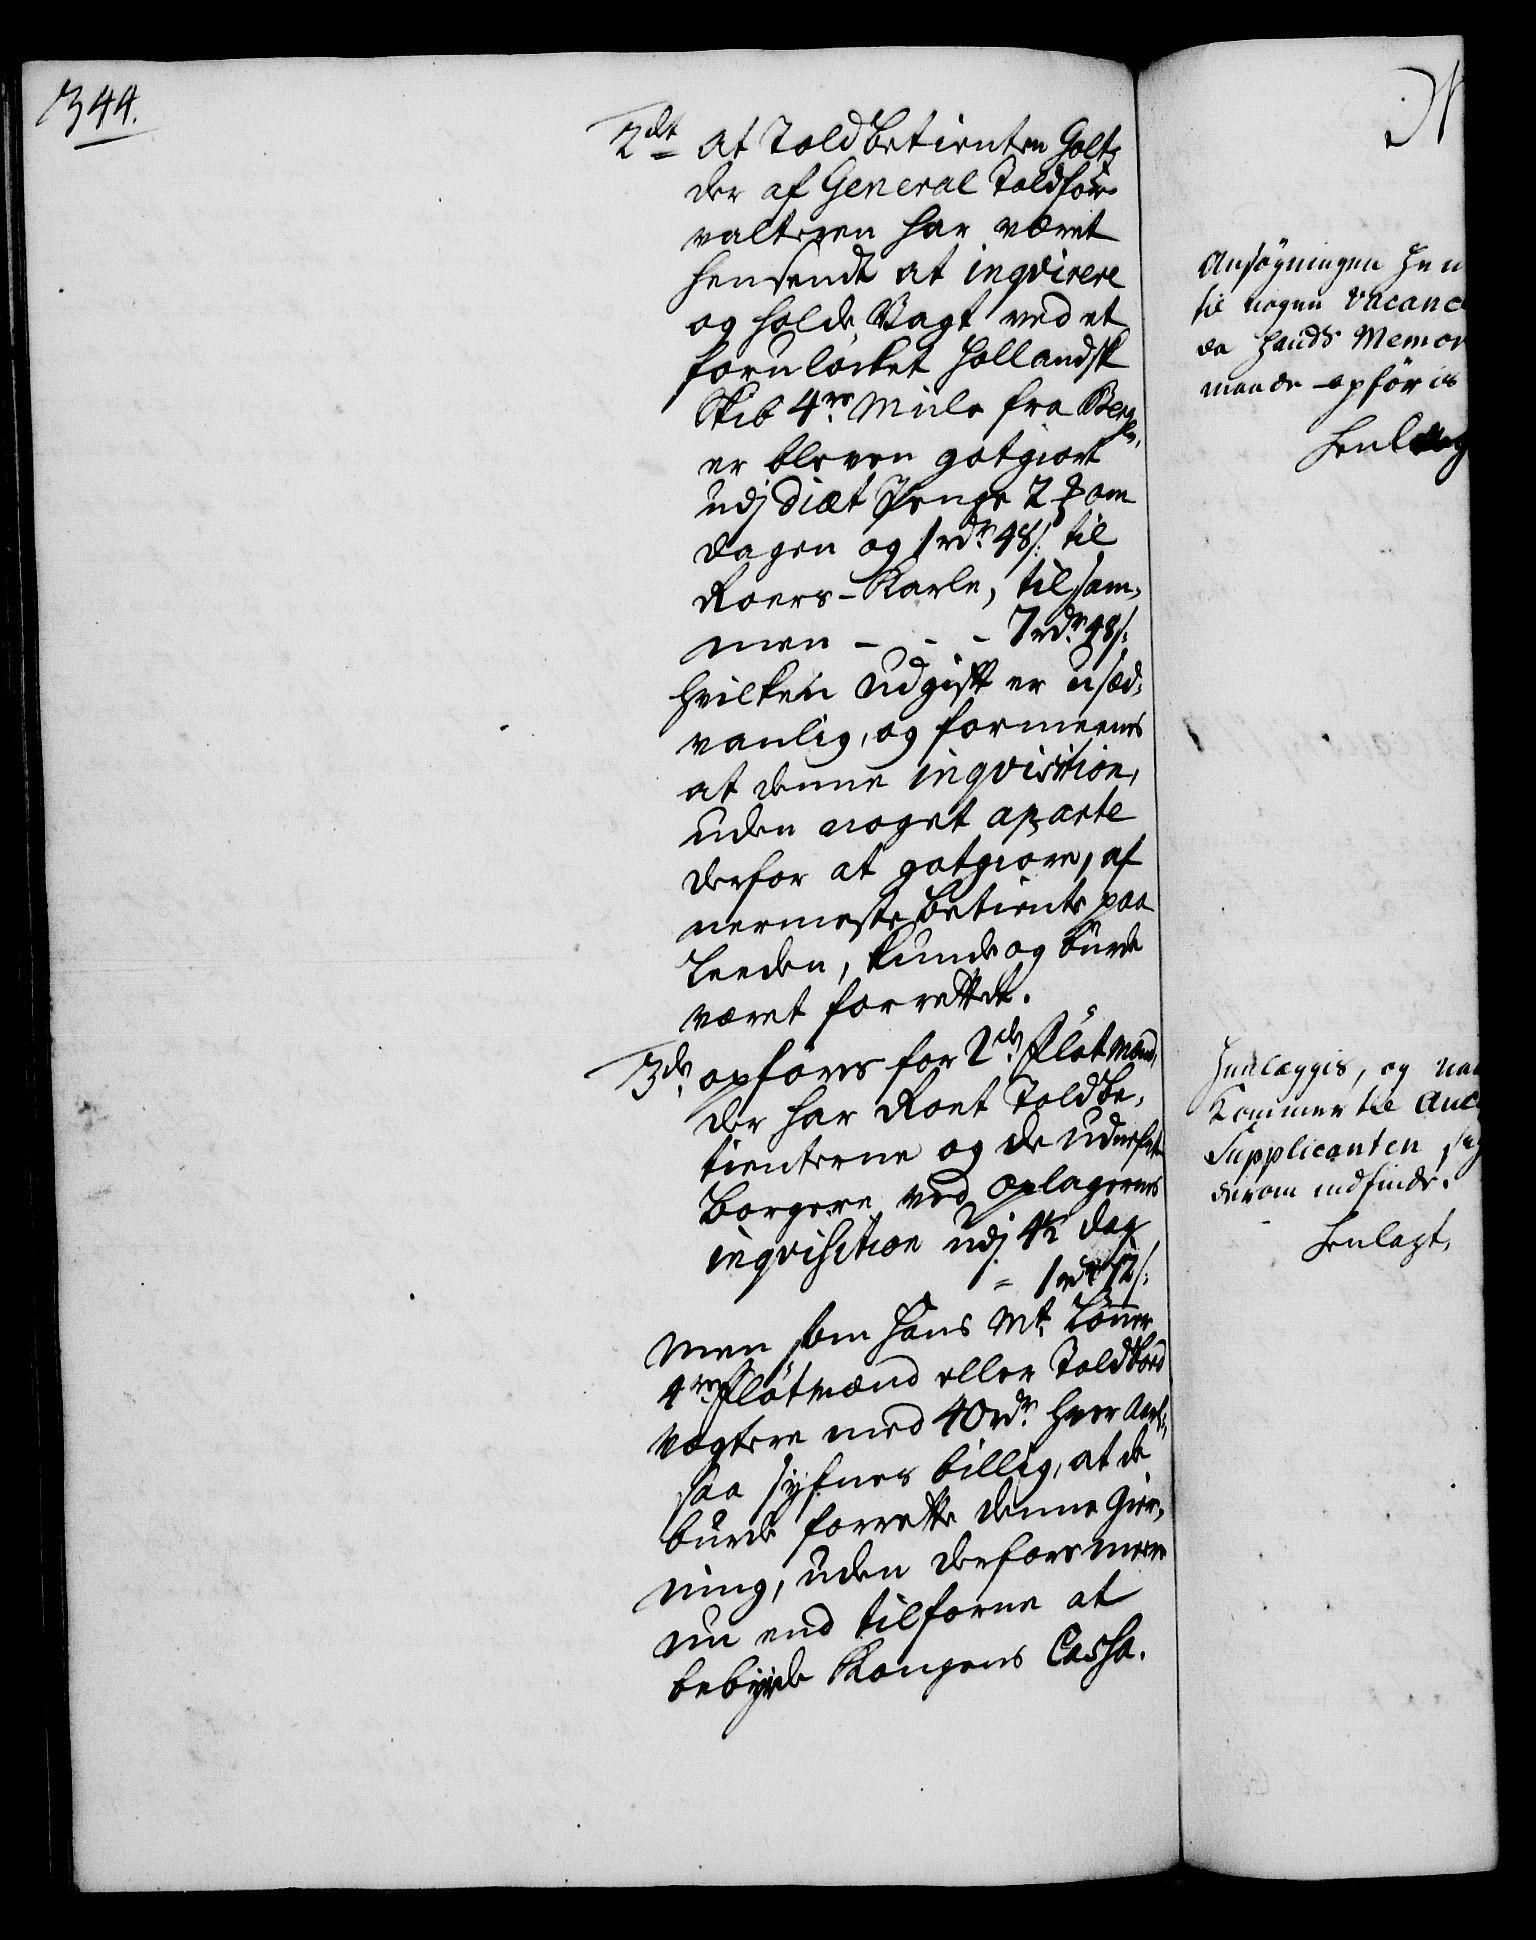 344.
2det at Toldbetienten Holts
der af General Toldfor-
valteren har været
hensendt at inqvirere
og holde Vagt ved et
foruløcket Hollandsk
Skib 4re Miile fra Bergen,
er bleven gotgiort
udj diæt Penge 2 ȝ om
dagen og 1 rdr 48 s: til
Roers-Karle, tilsam-
men - - - 7 rdr 48 s:
hvilken Udgift er usæd-
vanlig, og formeenes
at denne inqvisition,
uden noget aparte
derfor at gotgiøre, af
nermeste betiente paa
Leeden, kunde og burde
været forrettet.
3de opføres for 2de Fløtmænd,
der har Roet Toldbe-
tienterne og de udnefnte
Borgere ved Oplagernes
inqvisition udj 4½ dag
- 1 rdr 12 s:
men som Hans Mt. Lønner
4re Fløtmænd eller Toldbod
Vægtere med 40 rdr hver Aarl:
saa synes billig, at de
burde forrette denne Gier-
ning, uden derfor meere
nu end tilforne at
bebyrde Kongens Cassa.
Ansøgningen hen
til nogen Vacanc
da hands Memor
maade opføris
henlag
Henlæggis, og naa
Kommer til Auc
Supplicanten sig
derom indfinde.
henlagt,